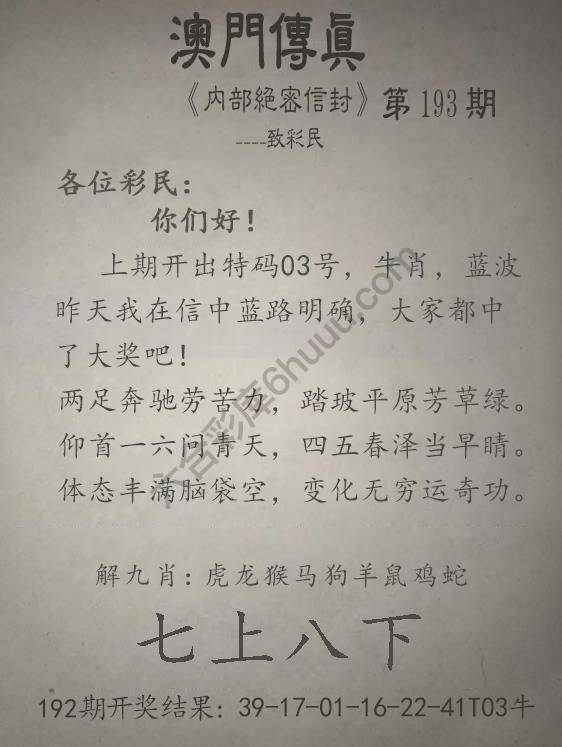 澳門傳真
《内部絕密信封》第193期
----致彩民
各位彩民：
你们好！
上期开出特码03号，牛肖，蓝波
昨天我在信中蓝路明确，大家都中
了大奖吧！
两足奔驰劳苦力，踏玻平原芳草绿。
仰首一六问青天，四五春泽当早晴。
体态丰满脑袋空，变化无穷运奇功。
解九肖：虎龙猴马狗羊鼠鸡蛇
七上八下
192期开奖结果：39-17-01-16-22-41T03牛
六合彩库6huuu.com